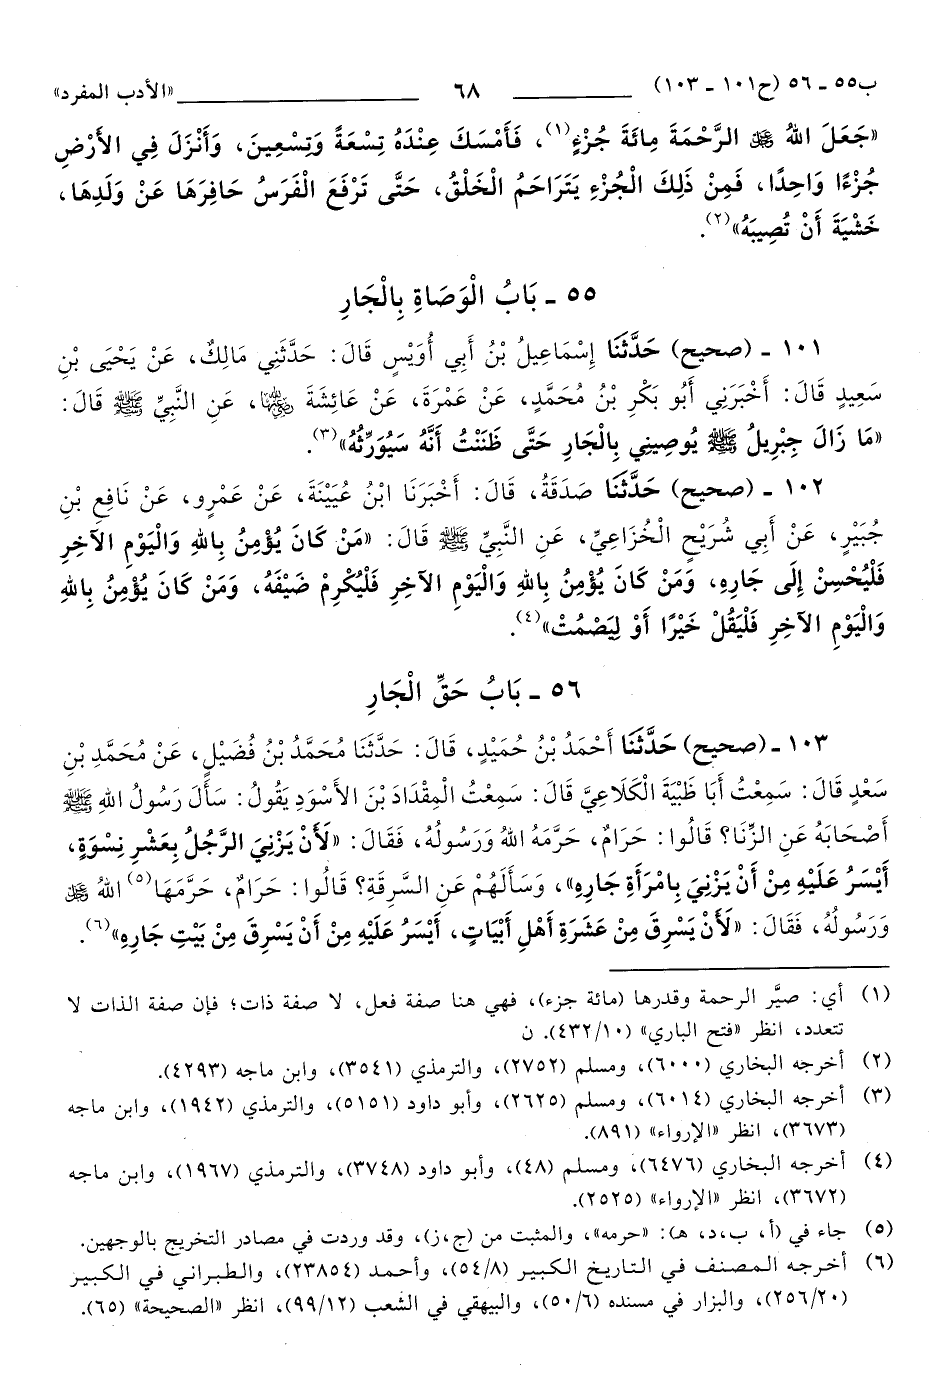 ب٥٥ ـ ٥٦ (ح١٠١ ـ ١٠٣) ٦٨ «الأدب المفرد»
«جَعَلَ اللهُ ﷻ الرَّحْمَةَ مِائَةَ جُزْءٍ(١)، فَأَمْسَكَ عِنْدَهُ تِسْعَةً وَتِسْعِينَ، وَأَنْزَلَ فِي الأَرْضِ
جُزْءًا وَاحِدًا، فَمِنْ ذَلِكَ الْجُزْءِ يَتَرَاحَمُ الْخَلْقُ، حَتَّى تَرْفَعَ الْفَرَسُ حَافِرَهَا عَنْ وَلَدِهَا،
خَشْيَةَ أَنْ تُصِيبَهُ»(٢).
٥٥ ـ بَابُ الْوَصَاةِ بِالْجَارِ
١٠١ ـ (صحيح) حَدَّثَنَا إِسْمَاعِيلُ بْنُ أَبِي أُوَيْسٍ قَالَ: حَدَّثَنِي مَالِكٌ، عَنْ يَحْيَى بْنِ
سَعِيدٍ قَالَ: أَخْبَرَنِي أَبُو بَكْرِ بْنُ مُحَمَّدٍ، عَنْ عَمْرَةَ، عَنْ عَائِشَةَ رضي الله عنها، عَنِ النَّبِيِّ ﷺ قَالَ:
«مَا زَالَ جِبْرِيلُ ﷺ يُوصِينِي بِالْجَارِ حَتَّى ظَنَنْتُ أَنَّهُ سَيُوَرِّثُهُ»(٣).
١٠٢ ـ (صحيح) حَدَّثَنَا صَدَقَةُ، قَالَ: أَخْبَرَنَا ابْنُ عُيَيْنَةَ، عَنْ عَمْرٍو، عَنْ نَافِعِ بْنِ
جُبَيْرٍ، عَنْ أَبِي شُرَيْحٍ الْخُزَاعِيِّ، عَنِ النَّبِيِّ ﷺ قَالَ: «مَنْ كَانَ يُؤْمِنُ بِاللهِ وَالْيَوْمِ الآخِرِ
فَلْيُحْسِنْ إِلَى جَارِهِ، وَمَنْ كَانَ يُؤْمِنُ بِاللهِ وَالْيَوْمِ الآخِرِ فَلْيُكْرِمْ ضَيْفَهُ، وَمَنْ كَانَ يُؤْمِنُ بِاللهِ
وَالْيَوْمِ الآخِرِ فَلْيَقُلْ خَيْرًا أَوْ لِيَصْمُتْ»(٤).
٥٦ ـ بَابُ حَقِّ الْجَارِ
١٠٣ ـ (صحيح) حَدَّثَنَا أَحْمَدُ بْنُ حُمَيْدٍ، قَالَ: حَدَّثَنَا مُحَمَّدُ بْنُ فُضَيْلٍ، عَنْ مُحَمَّدِ بْنِ
سَعْدٍ قَالَ: سَمِعْتُ أَبَا ظَبْيَةَ الْكَلَاعِيَّ قَالَ: سَمِعْتُ الْمِقْدَادَ بْنَ الأَسْوَدِ يَقُولُ: سَأَلَ رَسُولُ اللهِ ﷺ
أَصْحَابَهُ عَنِ الزِّنَا؟ قَالُوا: حَرَامٌ، حَرَّمَهُ اللهُ وَرَسُولُهُ، فَقَالَ: «لَأَنْ يَزْنِيَ الرَّجُلُ بِعَشْرِ نِسْوَةٍ،
أَيْسَرُ عَلَيْهِ مِنْ أَنْ يَزْنِيَ بِامْرَأَةِ جَارِهِ»، وَسَأَلَهُمْ عَنِ السَّرِقَةِ؟ قَالُوا: حَرَامٌ، حَرَّمَهَا(٥) اللهُ ﷻ
وَرَسُولُهُ، فَقَالَ: «لَأَنْ يَسْرِقَ مِنْ عَشَرَةِ أَهْلِ أَبْيَاتٍ، أَيْسَرُ عَلَيْهِ مِنْ أَنْ يَسْرِقَ مِنْ بَيْتِ جَارِهِ»(٦).
(١) أي: صيَّر الرحمة وقدرها (مائة جزء)، فهي هنا صفة فعل، لا صفة ذات؛ فإن صفة الذات لا
تتعدد، انظر «فتح الباري» (٤٣٢/١٠). ن
(٢) أخرجه البخاري (٦٠٠٠)، ومسلم (٢٧٥٢)، والترمذي (٣٥٤١)، وابن ماجه (٤٢٩٣).
(٣) أخرجه البخاري (٦٠١٤)، ومسلم (٢٦٢٥)، وأبو داود (٥١٥١)، والترمذي (١٩٤٢)، وابن ماجه
(٣٦٧٣)، انظر «الإرواء» (٨٩١).
(٤) أخرجه البخاري (٦٤٧٦)، ومسلم (٤٨)، وأبو داود (٣٧٤٨)، والترمذي (١٩٦٧)، وابن ماجه
(٣٦٧٢)، انظر «الإرواء» (٢٥٢٥).
(٥) جاء في (أ، ب،د، هـ): «حرمه»، والمثبت من (ج،ز)، وقد وردت في مصادر التخريج بالوجهين.
(٦) أخرجه المصنف في التاريخ الكبير (٥٤/٨)، وأحمد (٢٣٨٥٤)، والطبراني في الكبير
(٢٥٦/٢٠)، والبزار في مسنده (٥٠/٦)، والبيهقي في الشعب (٩٩/١٢)، انظر «الصحيحة» (٦٥).